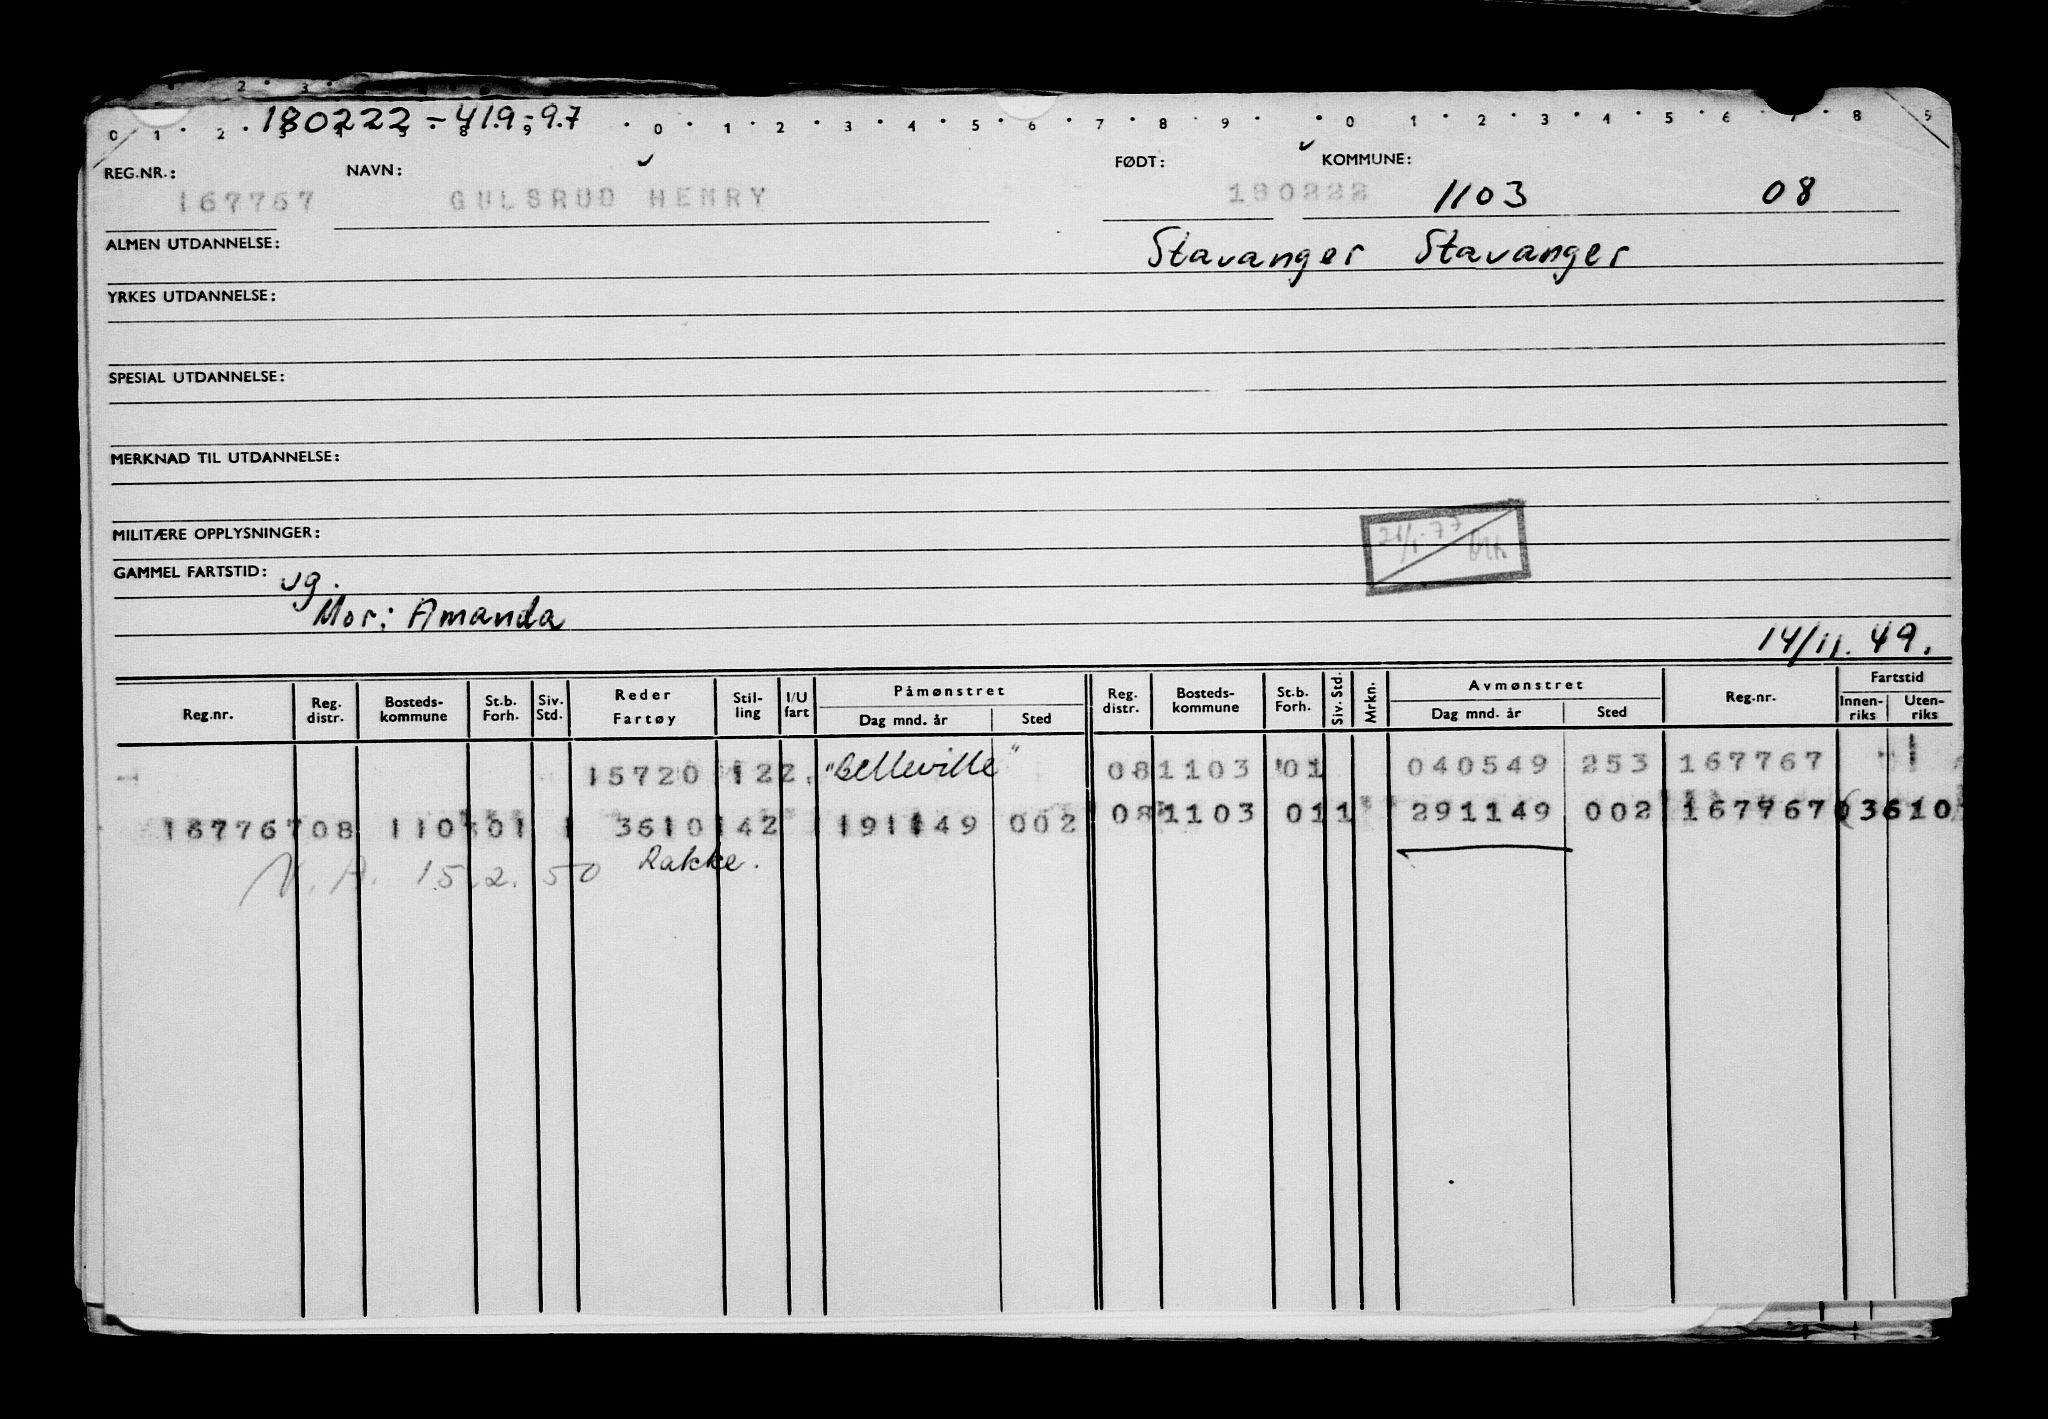 180222-419-9.7
0 1 2 3 4 5 8 9 0 1 2 3 4 5 6 7 8 9 0 1 2 3 4 5 6 7 8 9
REG.NR.: NAVN: FØDT: KOMMUNE:
167767 GULSRUD HENRY 180222 1103 08
ALMEN UTDANNELSE: Stavanger Stavanger
YRKES UTDANNELSE:
SPESIAL UTDANNELSE:
MERKNAD TIL UTDANNELSE:
MILITÆRE OPPLYSNINGER:
GAMMEL FARTSTID: ug.
Mor: Amanda
14/11. 49.
Reg.nr. Reg. distr. Bosteds-kommune St.b. Forh. Siv. Std. Reder Fartøy Stil-ling I/U fart Påmønstret Dag mnd. år Sted Reg. distr. Bosteds-kommune St.b. Forh. Siv. Std. Mrkn. Avmønstret Dag mnd. år Sted Reg.nr. Fartstid Innen-riks Uten-riks
15720 122. "Belleville" 08 1103 01 040549 253 167767 1
167767 08 110 01 1 3610 142 191149 002 08 1103 01 1 291149 002 167767 03610
N. A. 15.2. 50 Rakke.